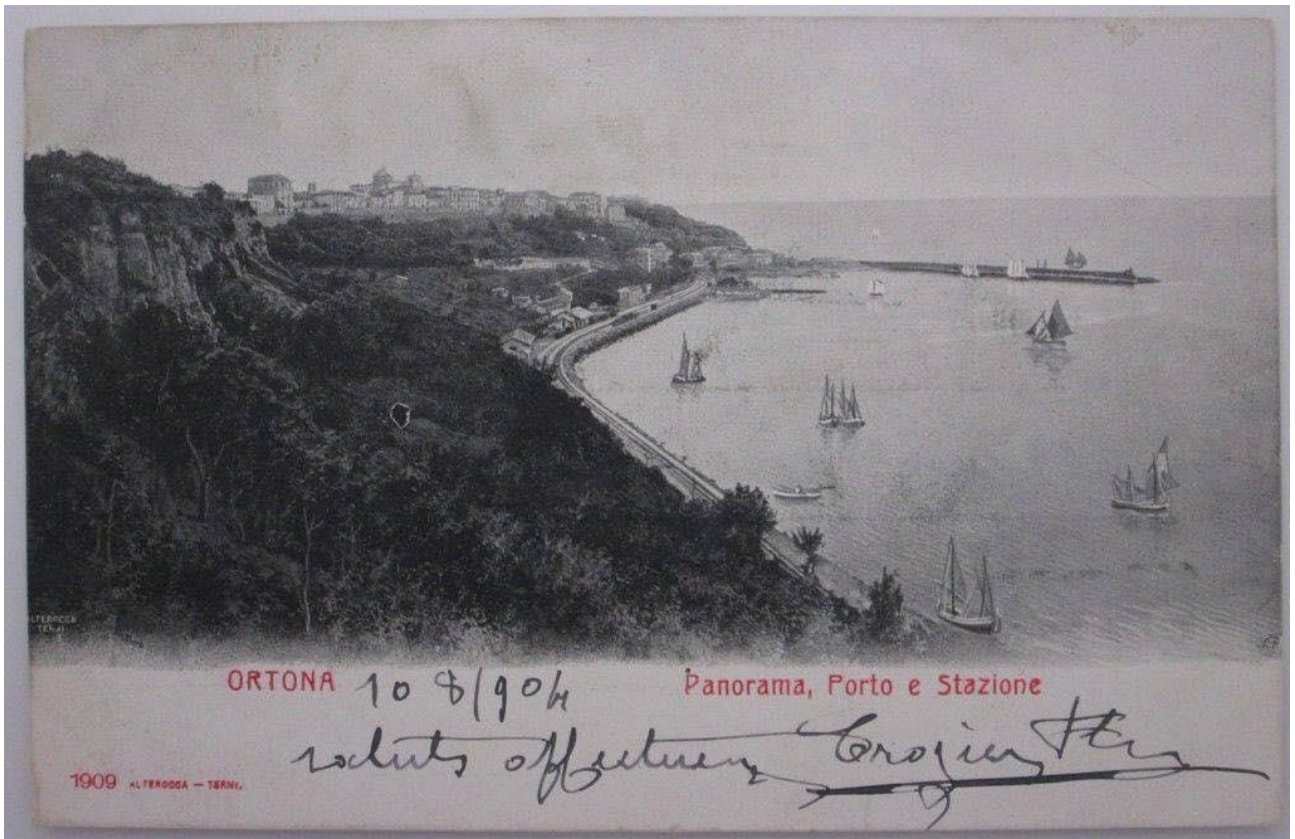 ALTEROCCA
TERNI
ORTONA 10 8/904 Panorama, Porto e Stazione
saluti
1909 ALTEROCCA — TERNI.